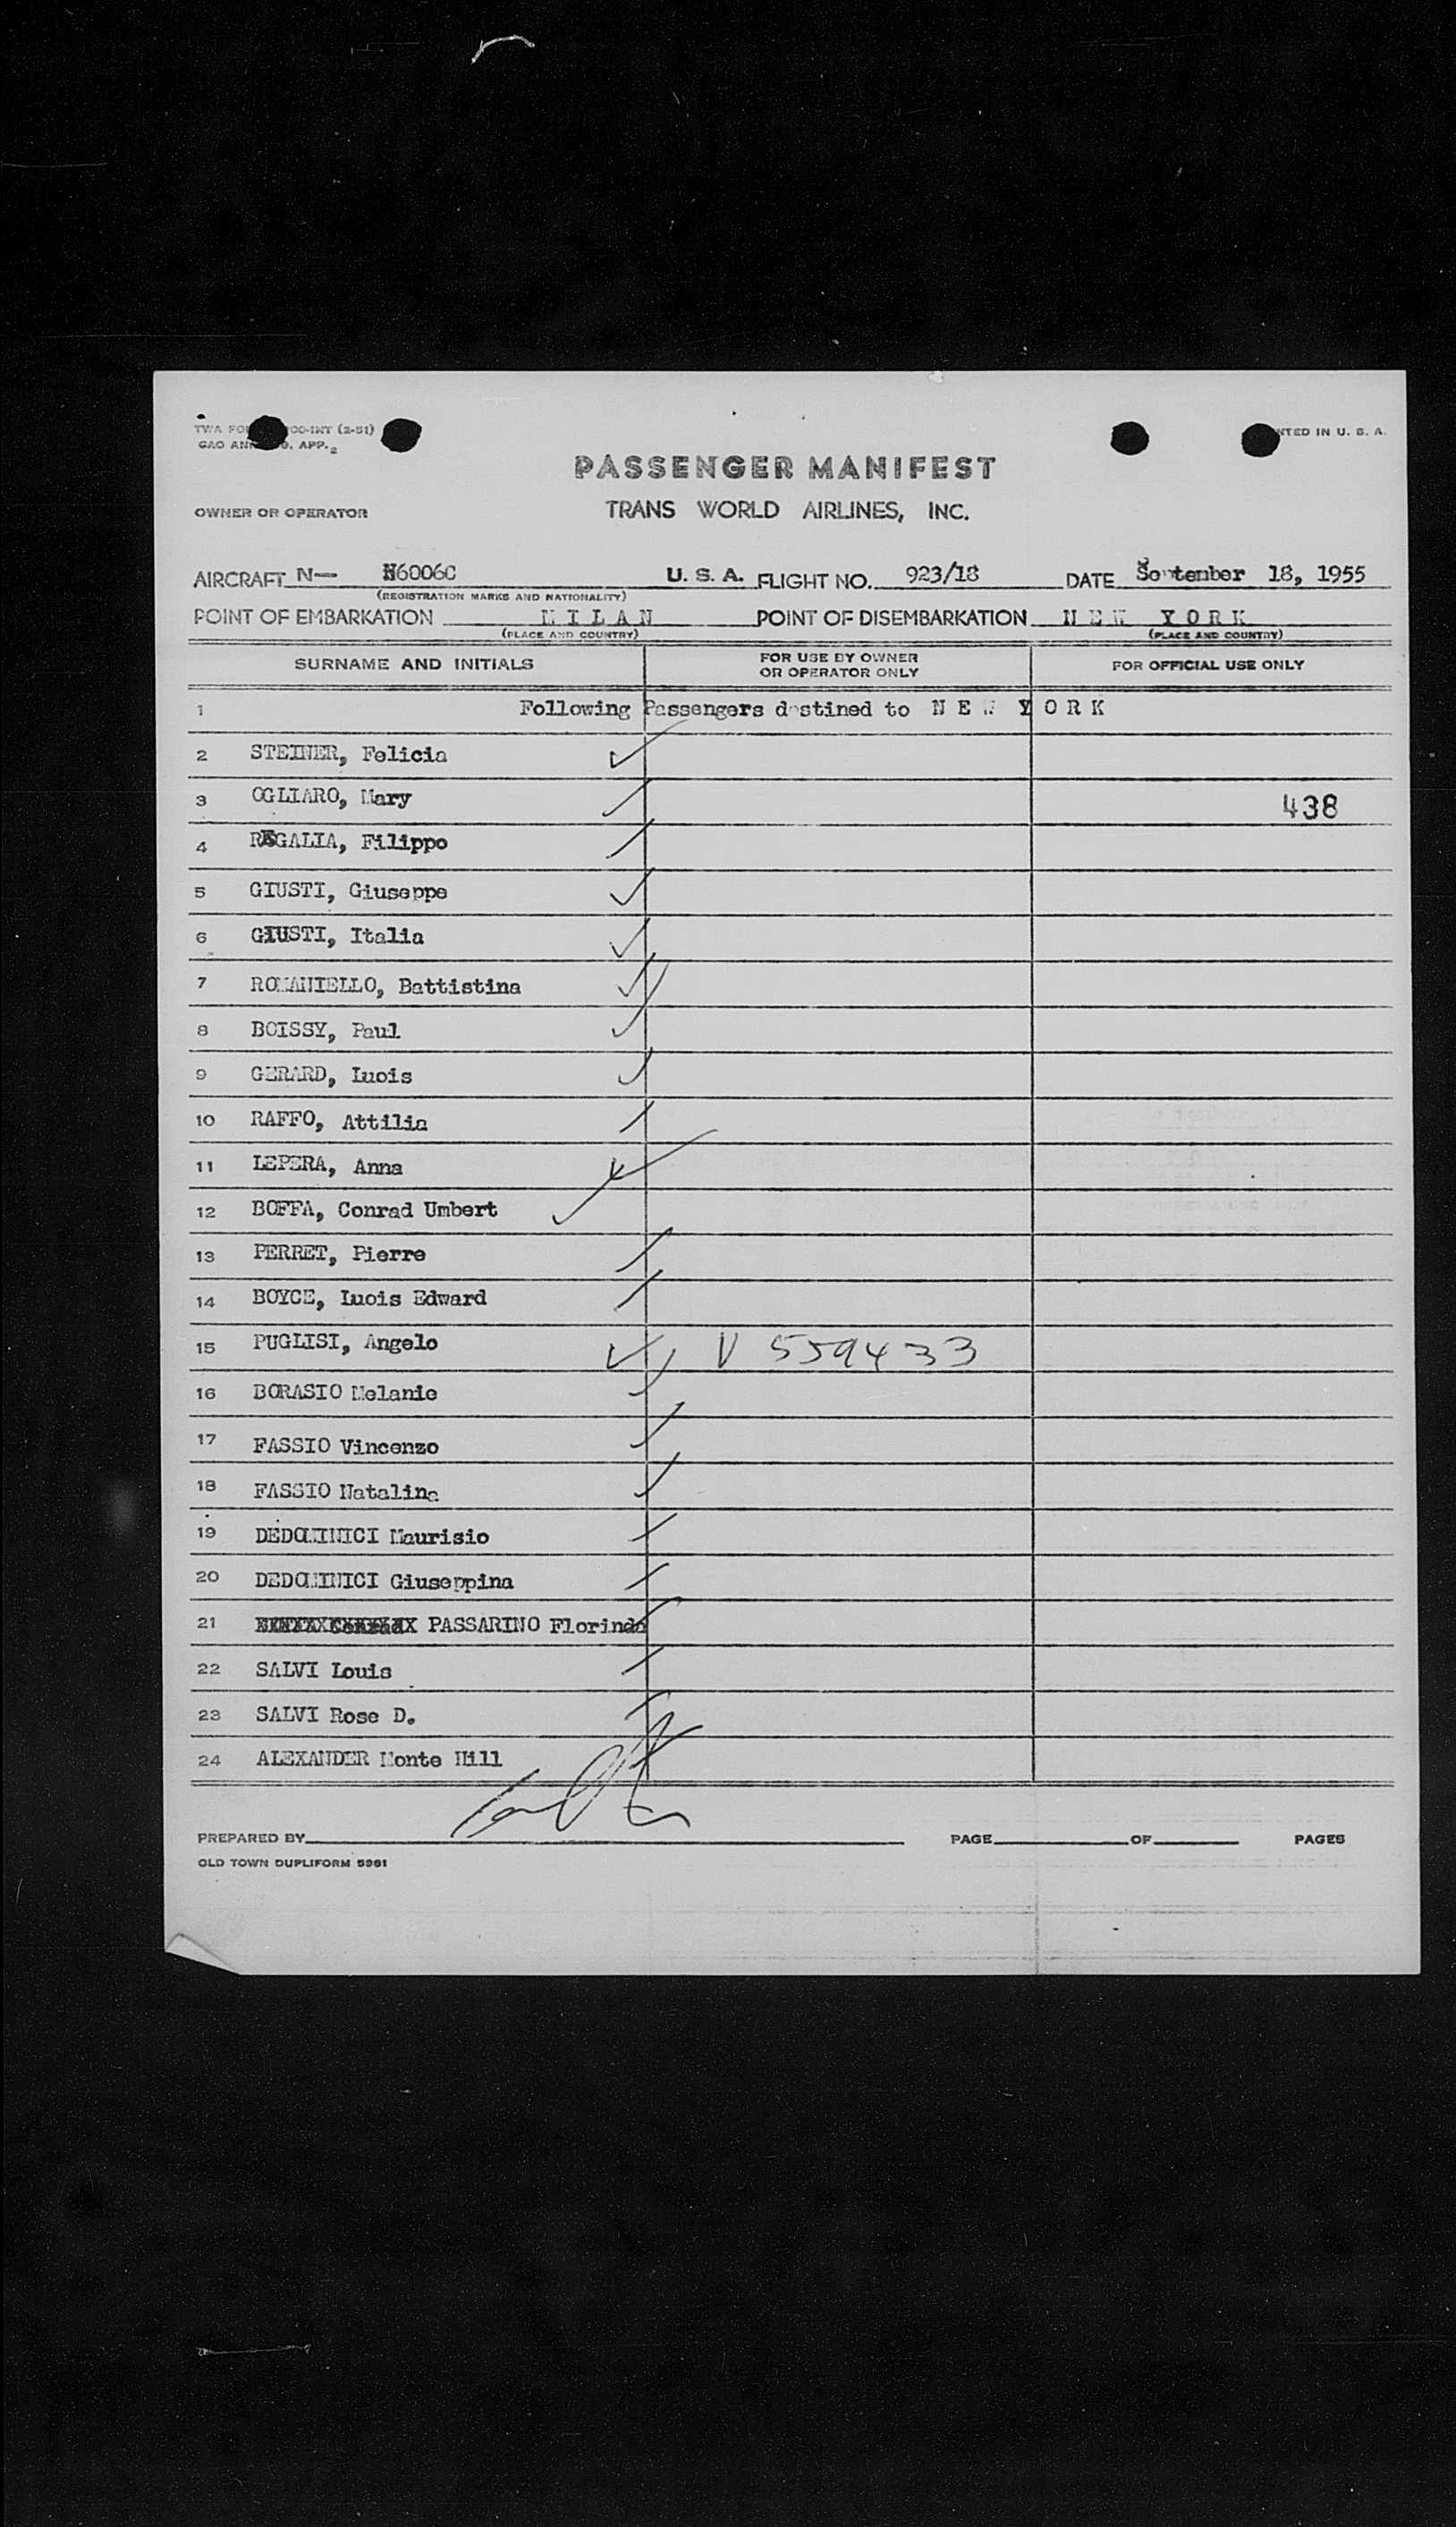 TWA FO 00-INT (2-51)
GAO AN . APP. 2
NTED IN U. S. A.
PASSENGER MANIFEST
OWNER OR OPERATOR TRANS WORLD AIRLINES, INC.
AIRCRAFT N— N6006C U. S. A. FLIGHT NO. 923/18 DATE September 18, 1955
(REGISTRATION MARKS AND NATIONALITY)
POINT OF EMBARKATION M I L A N POINT OF DISEMBARKATION N E W Y O R K
(PLACE AND COUNTRY) (PLACE AND COUNTRY)
SURNAME AND INITIALS FOR USE BY OWNER OR OPERATOR ONLY FOR OFFICIAL USE ONLY
1 Following Passengers destined to N E W Y O R K
2 STEINER, Felicia
3 OGLIARO, Mary 438
4 REGALIA, Filippo
5 GIUSTI, Giuseppe
6 GIUSTI, Italia
7 ROMANIELLO, Battistina
8 BOISSY, Paul
9 GERARD, Luois
10 RAFFO, Attilia
11 LEPERA, Anna
12 BOFFA, Conrad Umbert
13 PERRET, Pierre
14 BOYCE, Luois Edward
15 PUGLISI, Angelo V 559433
16 BORASIO Melanie
17 FASSIO Vincenzo
18 FASSIO Natalina
19 DEDOMINICI Maurisio
20 DEDOMINICI Giuseppina
21 PASSARINO Florinda
22 SALVI Louis
23 SALVI Rose D.
24 ALEXANDER Monte Hill
PREPARED BY PAGE OF PAGES
OLD TOWN DUPLIFORM 5961